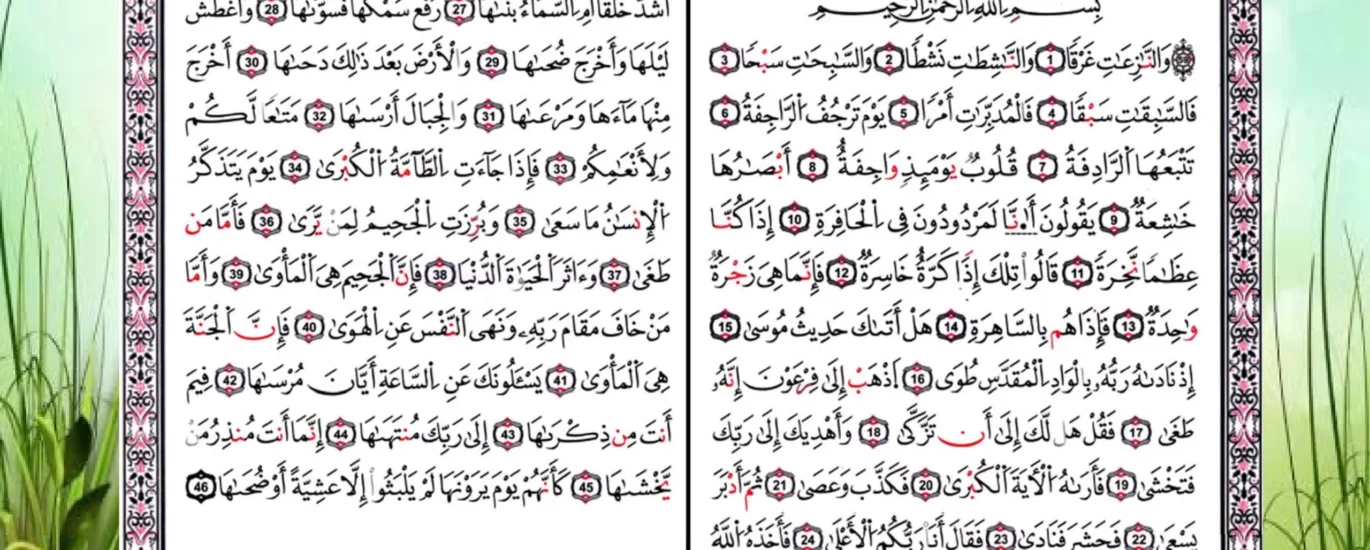 بِسْمِ اللَّهِ الرَّحْمَٰنِ الرَّحِيمِ
وَالنَّازِعَاتِ غَرْقًا 1 وَالنَّاشِطَاتِ نَشْطًا 2 وَالسَّابِحَاتِ سَبْحًا 3
فَالسَّابِقَاتِ سَبْقًا 4 فَالْمُدَبِّرَاتِ أَمْرًا 5 يَوْمَ تَرْجُفُ الرَّاجِفَةُ 6
تَتْبَعُهَا الرَّادِفَةُ 7 قُلُوبٌ يَوْمَئِذٍ وَاجِفَةٌ 8 أَبْصَارُهَا
خَاشِعَةٌ 9 يَقُولُونَ أَءِنَّا لَمَرْدُودُونَ فِي الْحَافِرَةِ 10 إِذَا كُنَّا
عِظَامًا نَّخِرَةً 11 قَالُوا تِلْكَ إِذًا كَرَّةٌ خَاسِرَةٌ 12 فَإِنَّمَا هِيَ زَجْرَةٌ
وَاحِدَةٌ 13 فَإِذَا هُم بِالسَّاهِرَةِ 14 هَلْ أَتَىٰكَ حَدِيثُ مُوسَىٰ 15
إِذْ نَادَىٰهُ رَبُّهُ بِالْوَادِ الْمُقَدَّسِ طُوًى 16 اذْهَبْ إِلَىٰ فِرْعَوْنَ إِنَّهُ
طَغَىٰ 17 فَقُلْ هَل لَّكَ إِلَىٰ أَن تَزَّكَّىٰ 18 وَأَهْدِيَكَ إِلَىٰ رَبِّكَ
فَتَخْشَىٰ 19 فَأَرَىٰهُ الْأَيَةَ الْكُبْرَىٰ 20 فَكَذَّبَ وَعَصَىٰ 21 ثُمَّ أَدْبَرَ
يَسْعَىٰ 22 فَحَشَرَ فَنَادَىٰ 23 فَقَالَ أَنَا رَبُّكُمُ الْأَعْلَىٰ 24 فَأَخَذَهُ اللَّهُ
أَشَدُّ خَلْقًا أَمِ السَّمَاءُ بَنَىٰهَا 27 رَفَعَ سَمْكَهَا فَسَوَّىٰهَا 28 وَأَغْطَشَ
لَيْلَهَا وَأَخْرَجَ ضُحَىٰهَا 29 وَالْأَرْضَ بَعْدَ ذَٰلِكَ دَحَىٰهَا 30 أَخْرَجَ
مِنْهَا مَآءَهَا وَمَرْعَىٰهَا 31 وَالْجِبَالَ أَرْسَىٰهَا 32 مَتَاعًا لَّكُمْ
وَلِأَنْعَامِكُمْ 33 فَإِذَا جَآءَتِ الطَّآمَّةُ الْكُبْرَىٰ 34 يَوْمَ يَتَذَكَّرُ
الْإِنسَانُ مَا سَعَىٰ 35 وَبُرِّزَتِ الْجَحِيمُ لِمَن يَرَىٰ 36 فَأَمَّا مَن
طَغَىٰ 37 وَءَاثَرَ الْحَيَوٰةَ الدُّنْيَا 38 فَإِنَّ الْجَحِيمَ هِيَ الْمَأْوَىٰ 39 وَأَمَّا
مَنْ خَافَ مَقَامَ رَبِّهِ وَنَهَى النَّفْسَ عَنِ الْهَوَىٰ 40 فَإِنَّ الْجَنَّةَ
هِيَ الْمَأْوَىٰ 41 يَسْـَٔلُونَكَ عَنِ السَّاعَةِ أَيَّانَ مُرْسَىٰهَا 42 فِيمَ
أَنتَ مِن ذِكْرَىٰهَا 43 إِلَىٰ رَبِّكَ مُنتَهَىٰهَا 44 إِنَّمَا أَنتَ مُنذِرُ مَن
يَخْشَىٰهَا 45 كَأَنَّهُمْ يَوْمَ يَرَوْنَهَا لَمْ يَلْبَثُوا إِلَّا عَشِيَّةً أَوْ ضُحَىٰهَا 46